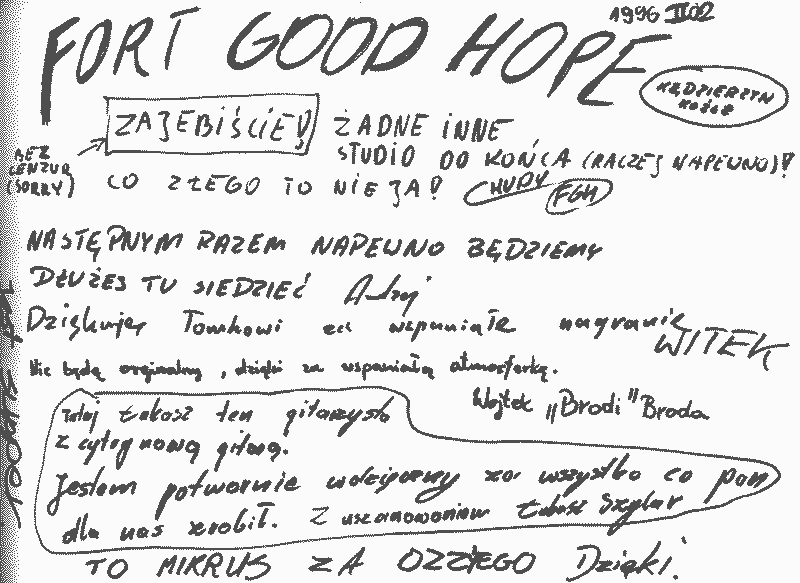 1996 II 02
FORT GOOD HOPE
KĘDZIERZYN
KOŹLE
ZAJEBIŚCIE! ŻADNE INNE
BEZ
CENZUR
(SORRY)
STUDIO DO KOŃCA (RACZEJ NAPEWNO)!
CO ZŁEGO TO NIE JA! CHUDY FGH
NASTĘPNYM RAZEM NAPEWNO BĘDZIEMY
DŁUŻEJ TU SIEDZIEĆ Andrzej
Dziękuję Tomkowi za wspaniałe nagranie
WITEK
Nie będę orginalny, dzięki za wspaniałą atmosferkę.
Wojtek „Brodi" Broda
Tutaj Łukasz ten gitarzysta
z cytrynową gitarą.
Jestem potwornie wdzięczny za wszystko co pan
dla nas zrobił. Z uszanowaniem Łukasz Szylar
TO MIKRUS ZA OZZIEGO Dzięki!